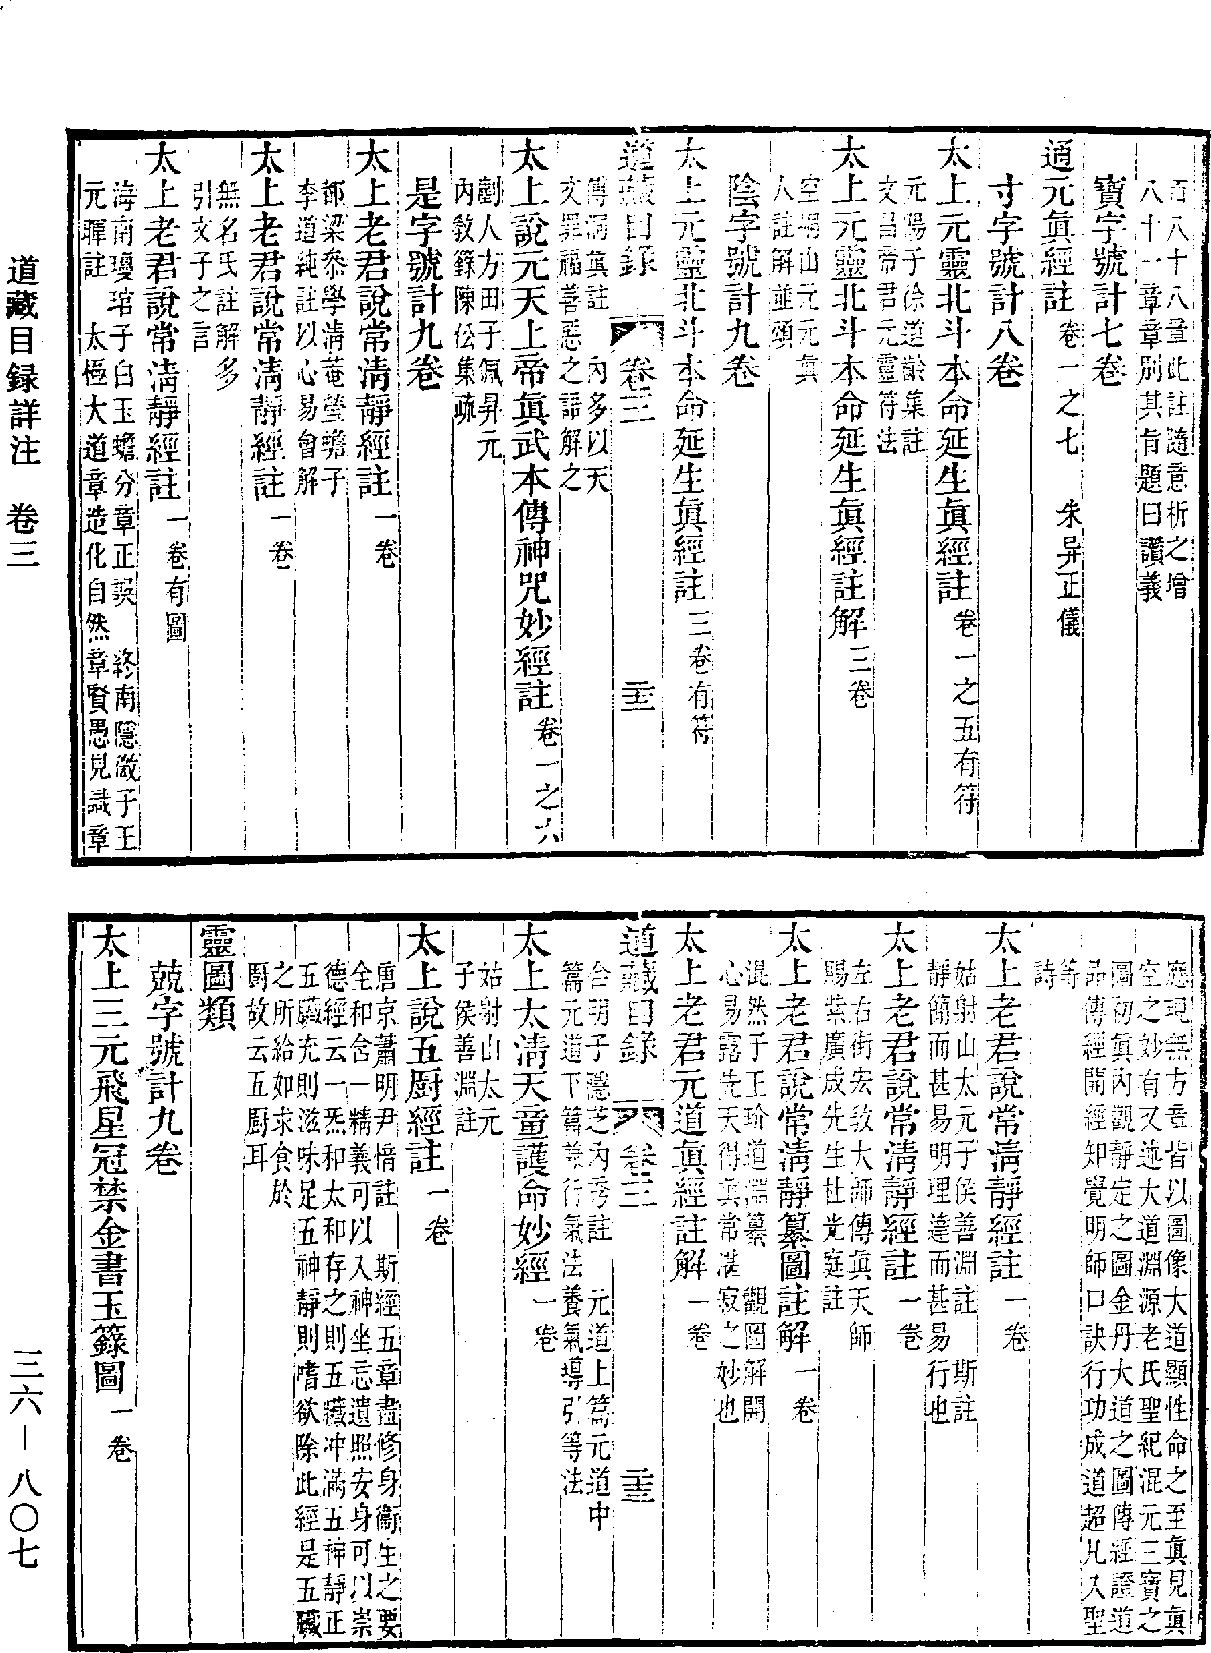 百八十八章此註隨意析之增
八十一章章別其肯題曰讚義
寶字號計七卷
通元眞經註 卷一之七 朱异正儀
寸字號計八卷
太上元靈北斗本命延生眞經註 卷一之五有符
元陽子徐道齡集註
文昌帝君元靈符法
太上元靈北斗本命延生眞經註解 三卷
空峒山元元眞
人註解並頌
陰字號計九卷
太上元靈北斗本命延生眞經註 三卷有符
道藏目錄 卷三 二十三
傅洞眞註 內多以天
文罪福善惡之語解之
太上說元天上帝眞武本傳神咒妙經註 卷一之六
劊人方田子佩昇元
內敎籙陳伀集疏
是字號計九卷
太上老君說常淸靜經註 一卷
都梁叅學淸菴瑩蟾子
李道純註以心易會解
太上老君說常淸靜經註 一卷
無名氏註解多
引文子之言
太上老君說常淸靜經註 一卷有圖
海南瓊琯子白玉蟾分章正誤 終南隱微子王
元暉註 太極大道章造化自然章賢愚見識章
應現無方章皆以圖像大道顯性命之至眞見眞
空之妙有又述大道淵源老氏聖紀混元三寶之
圖初眞內觀靜定之圖金丹大道之圖傳經證道
品傳經開經知覺明師口訣行功成道超凡入聖
等
詩
太上老君說常淸靜經註 一卷
姑射山太元子侯善淵註 斯註
靜簡而甚易明理達而甚易行也
太上老君說常淸靜經註 一卷
左右街宏敎大師傳眞天師
賜紫廣成先生杜光庭註
太上老君說常淸靜纂圖註解 一卷
混然子王玠道淵纂 觀圖解開
心易露先天得眞常湛寂之妙也
太上老君元道眞經註解 一卷
道藏目錄 卷三 二十三
合明子隱芝內秀註 元道上篇元道中
篇元道下篇兼行氣法養氣導引等法
太上太淸天童護命妙經 一卷
姑射山太元
子侯善淵註
太上說五廚經註 一卷
唐京肅明尹愔註 斯經五章盡修身衞生之要
全和含一精義可以入神坐忘遺照安身可以崇
德經云一炁和太和存之則五藏冲滿五神靜正
五臟充則滋味足五神靜則嗜欲除此經是五臟
之所給如求食於
廚故云五廚耳
靈圖類
兢字號計九卷
太上三元飛星冠禁金書玉籙圖 一卷
道藏目録詳注 卷三
三六—八〇七